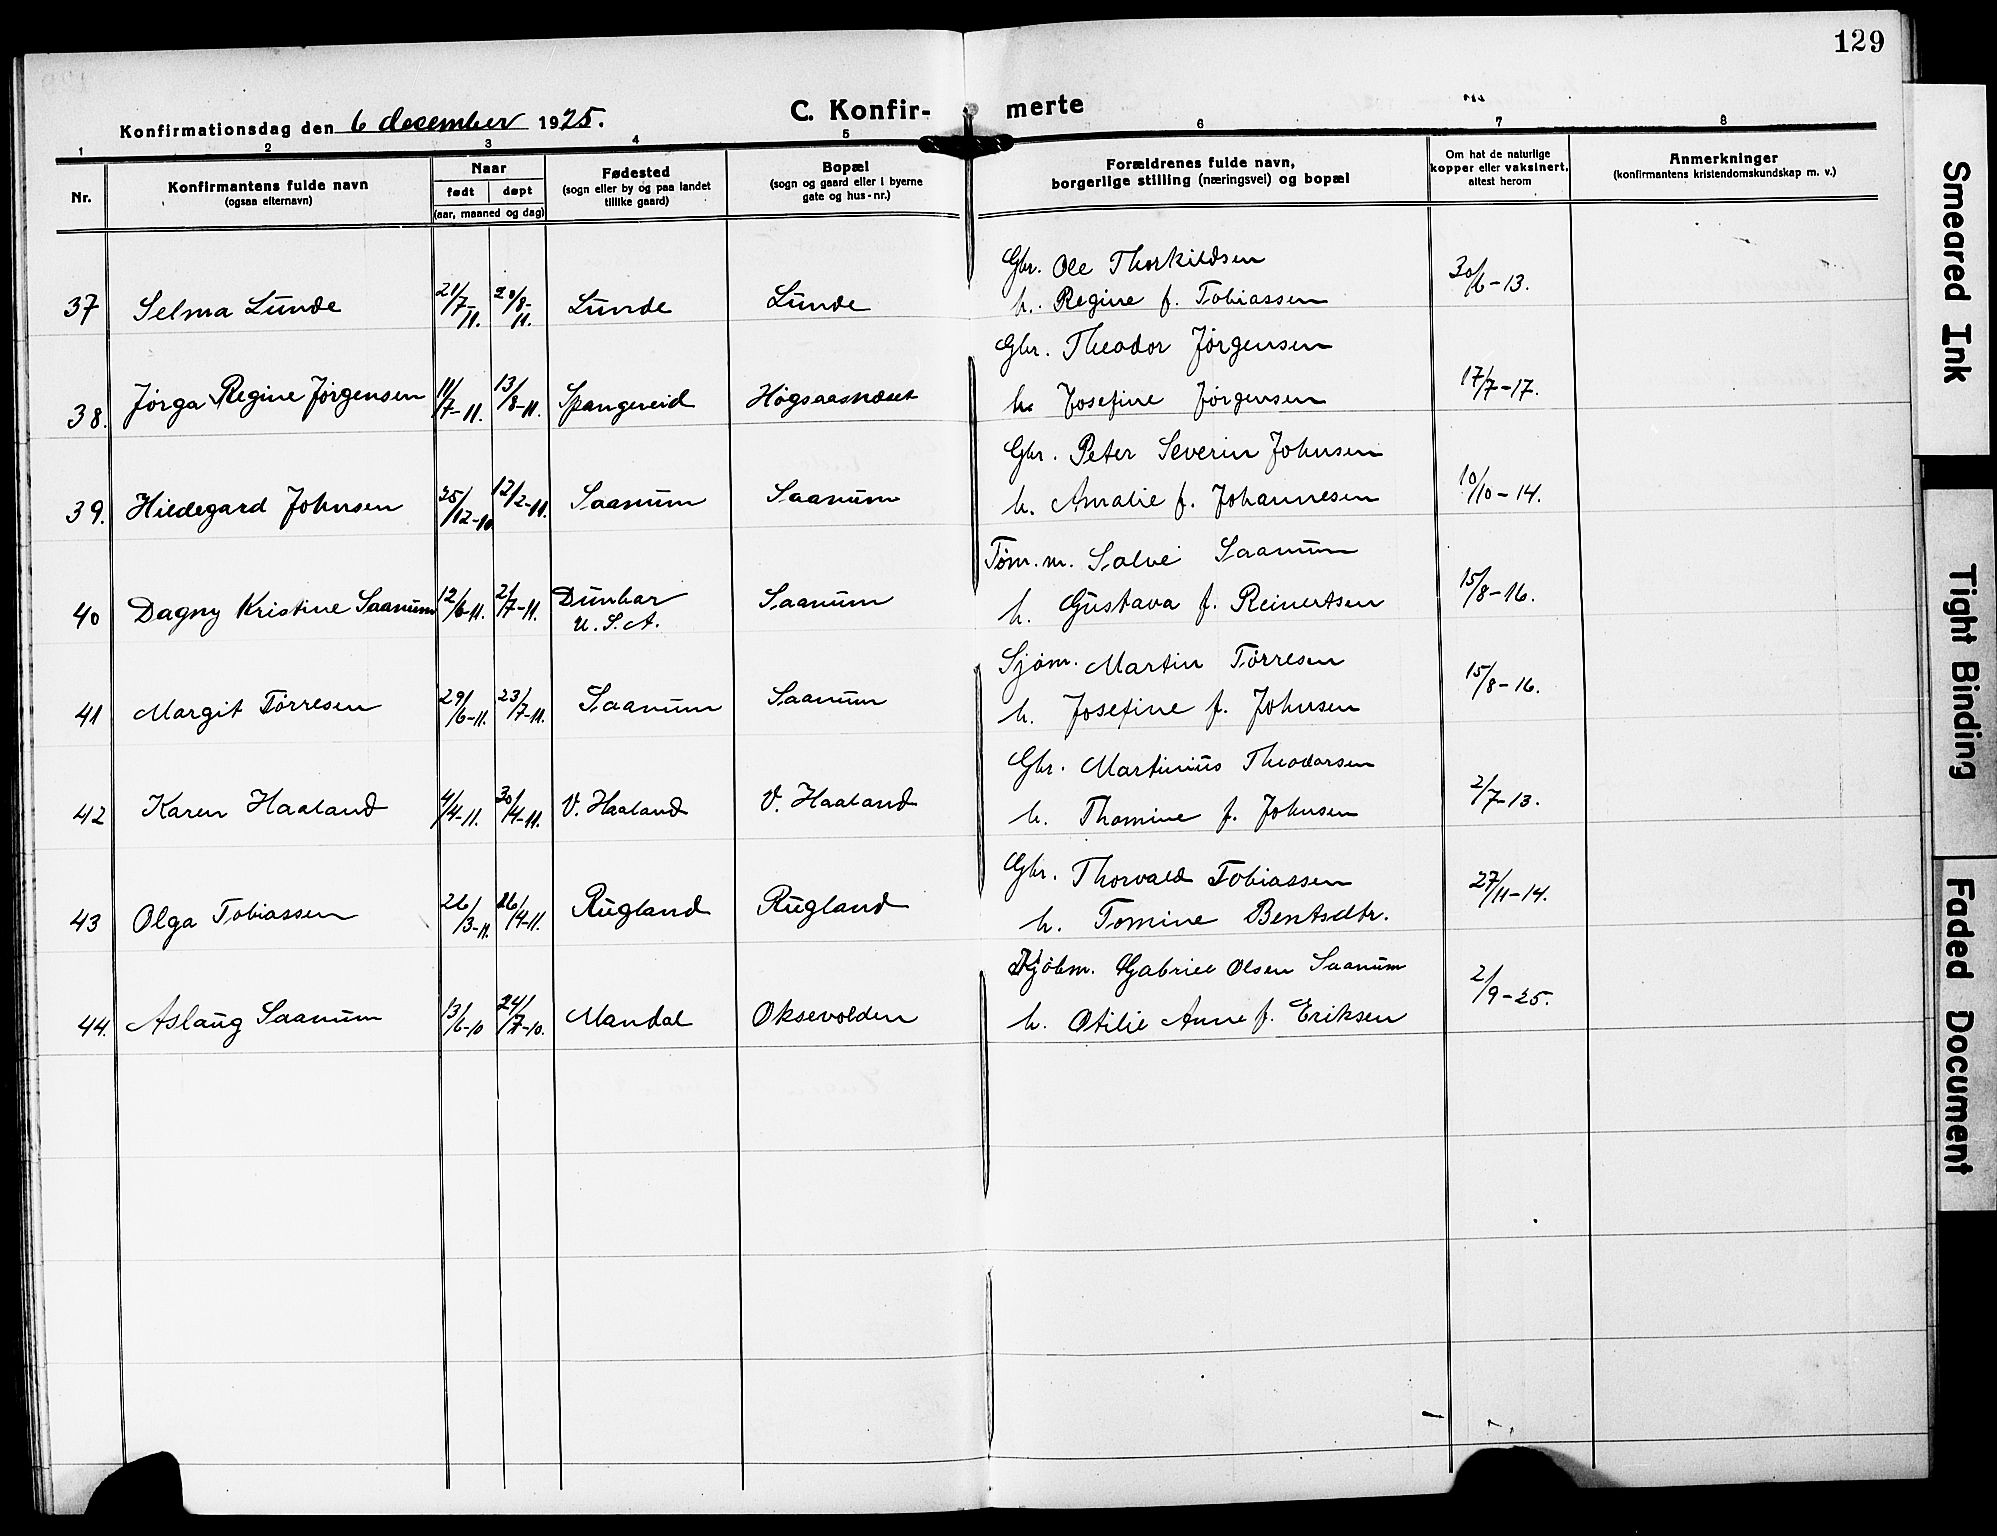 129
C. Konfir- merte
Konfirmationsdag den 6 december 1925.
1 2 3 4 5 6 7 8
Nr.
Konfirmantens fulde navn
(ogsaa efternavn)
Naar
født døpt
(aar, maaned og dag)
Fødested
(sogn eller by og paa landet
tillike gaard)
Bopæl
(sogn og gaard eller i byerne
gate og hus-nr.)
Forældrenes fulde navn,
borgerlige stilling (næringsvei) og bopæl
Om hat de naturlige
kopper eller vaksinert,
attest herom
Anmerkninger
(konfirmantens kristendomskundskap m. v.)
Gbr. Ole Thorkildsen
37 Selma Lunde 21/7-11. 20/8-11. Lunde Lunde h. Regine f. Tobiassen 30/6-13.
Gbr. Theodor Jørgensen
38. Jørga Regine Jørgensen 11/7-11. 13/8-11. Spangereid Høgsaasnæset h. Josefine Jørgensen 17/7-17.
Gbr. Peter Severin Johnsen
39. Hildegard Johnsen 25/12-10 12/2-11. Saanum Saanum h. Amalie f. Johannesen 10/10-14.
Tøm.m. Salve Saanum
40 Dagny Kristine Saanum 12/6-11. 2/7-11. Dunbar Saanum h. Gustava f. Reinertsen 15/8-16.
U.S.A.
Sjøm. Martin Tørresen
41 Margit Tørresen 29/6-11. 23/7-11. Saanum Saanum h. Josefine f. Johnsen 15/8-16.
Gbr. Martinius Theodorsen
42 Karen Haaland 4/4-11. 30/4-11. V. Haaland V. Haaland h. Thomine f. Johnsen 2/7-13.
Gbr. Thorvald Tobiassen
43 Olga Tobiassen 26/3-11. 26/4-11. Rugland Rugland h. Tomine Bentsdtr. 27/11-14.
Kjøbm. Gabriel Olsen Saanum
44. Aslaug Saanum 13/6-10 24/7-10. Mandal Oksevolden h. Otilie Anne f. Eriksen 2/9-25.
Smeared Ink
Tight Binding
Faded Document